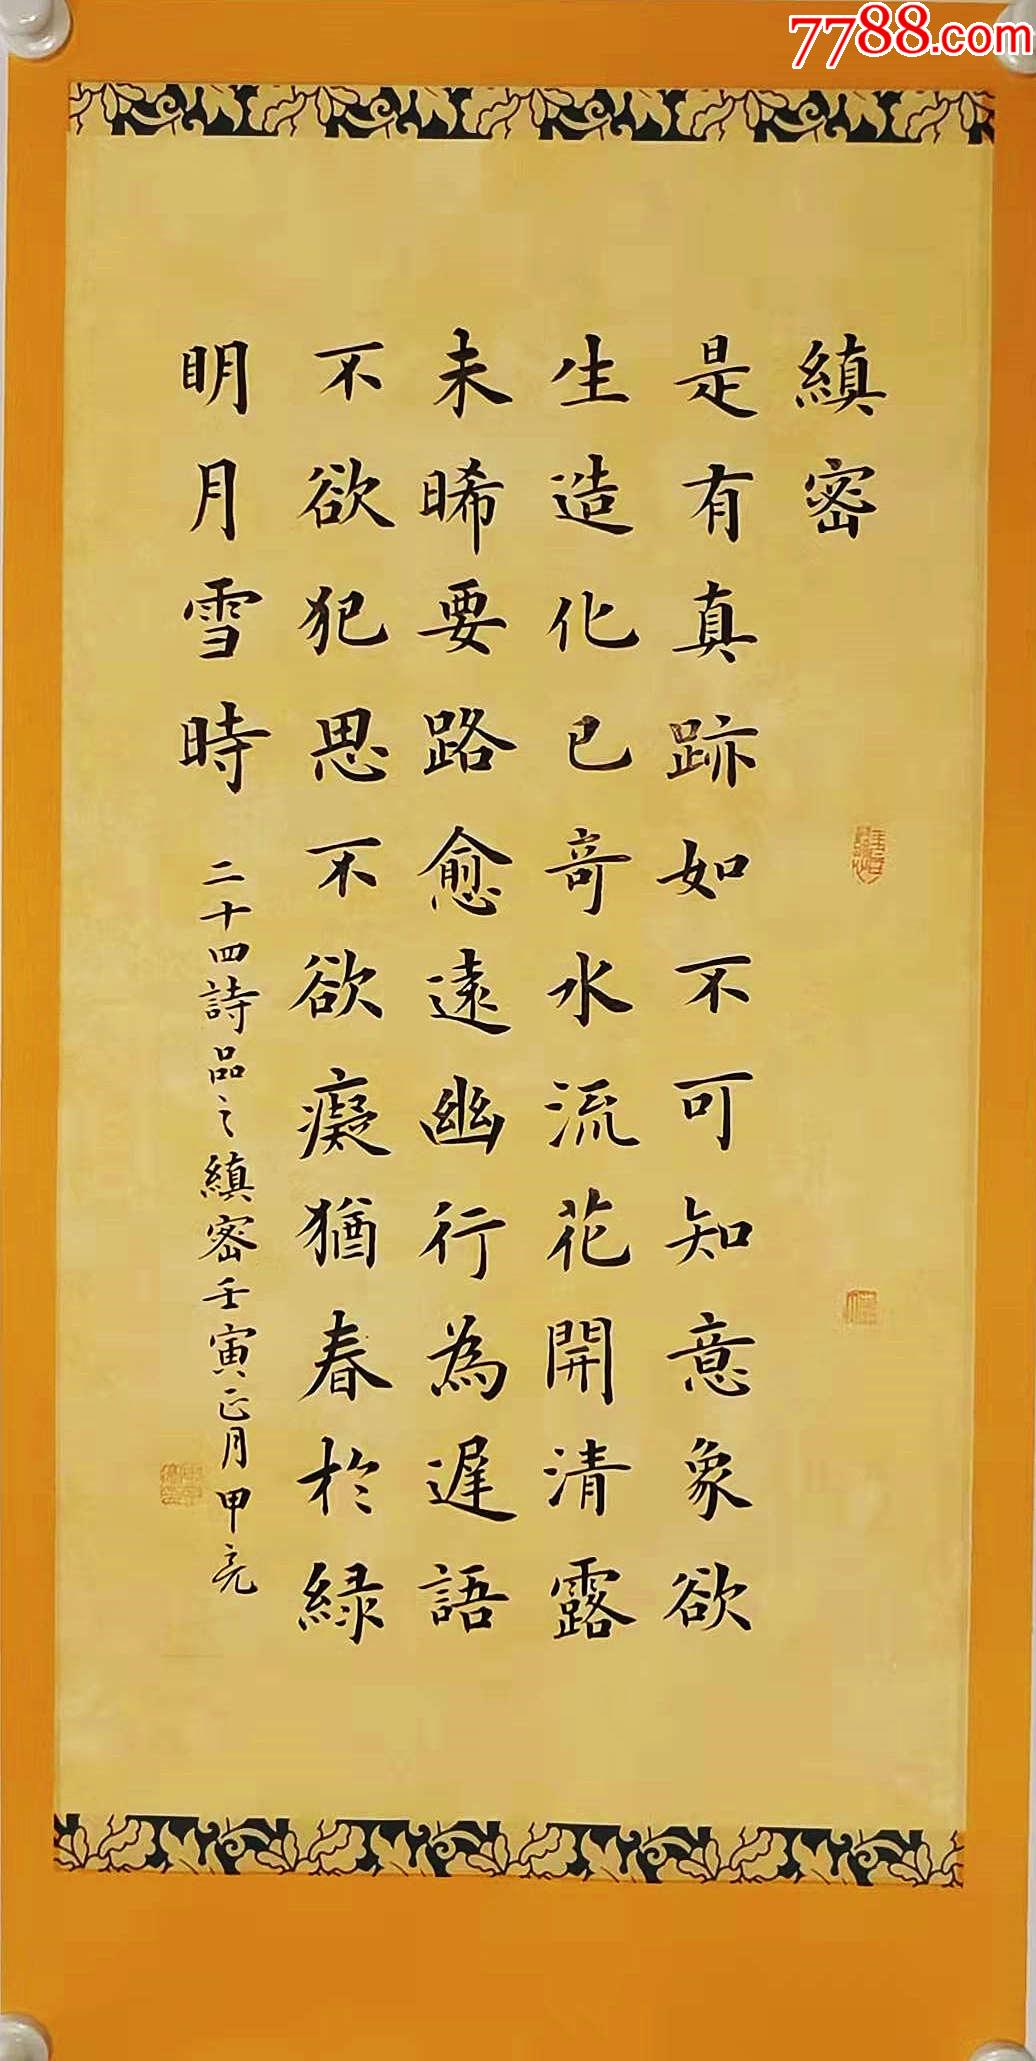 7788.com
縝密
是有真跡如不可知意象欲
生造化已奇水流花開清露
未晞要路愈遠幽行為遲語
不欲犯思不欲癡猶春於綠
明月雪時
二十四詩品之縝密壬寅正月甲亮